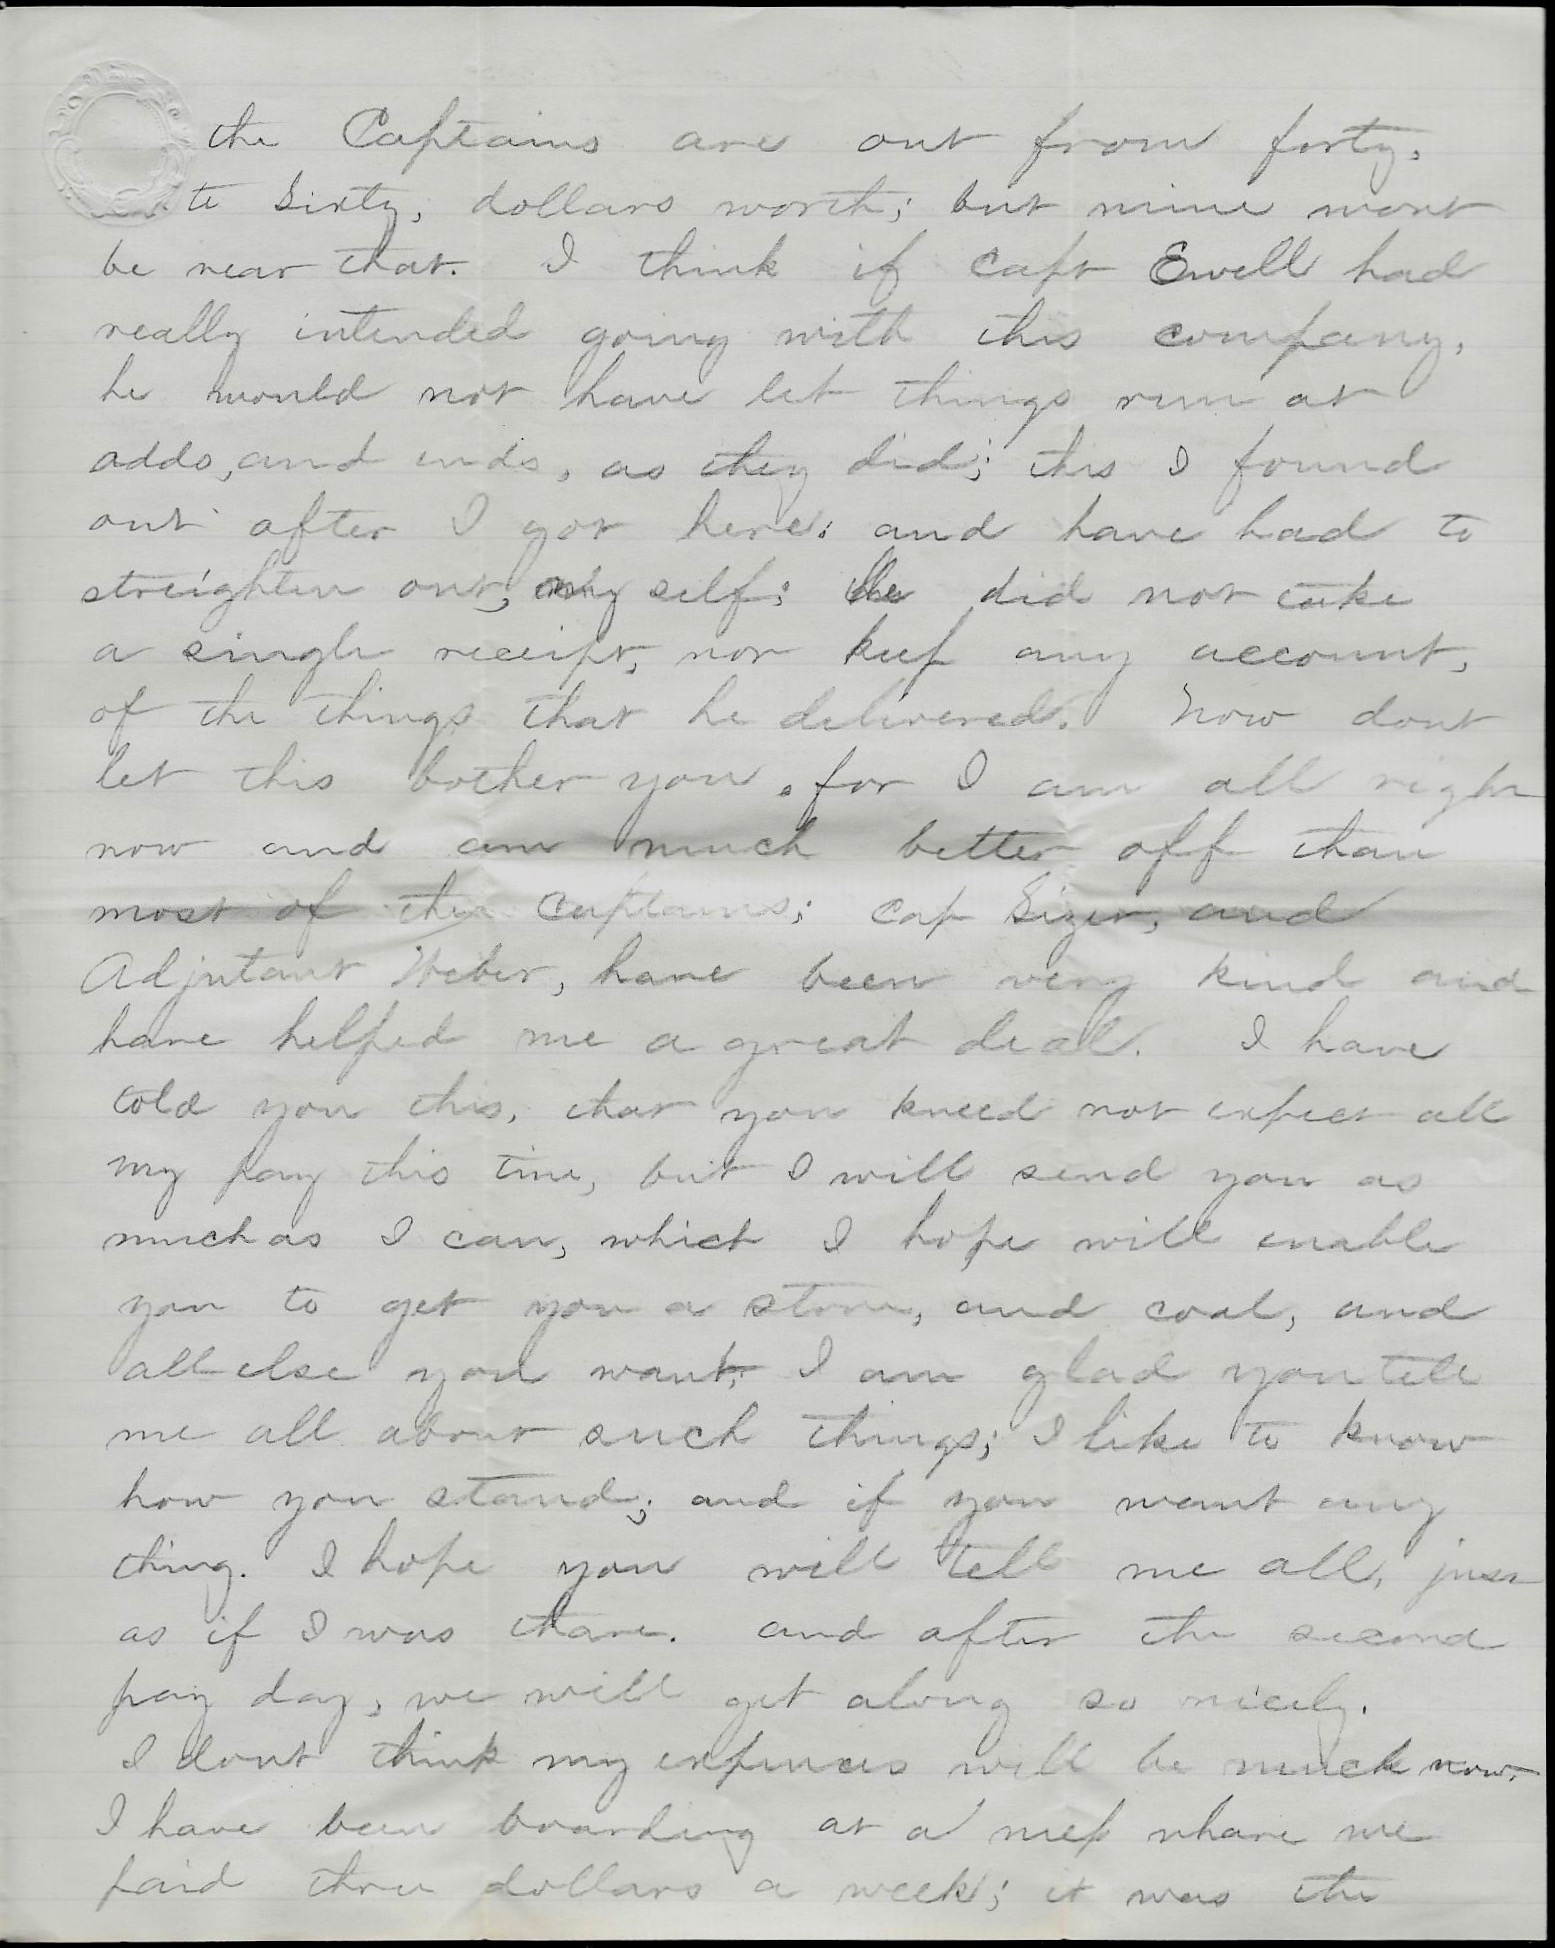 the Captains are out from forty,
to Sixty, dollars worth; but mine wont
be near that. I think if Capt Ewell had
really intended going with this company,
he would not have let things run at
odds, and ends, as they did; this I found
out after I got here: and have had to
streighten out, my self; He did not take
a single receipt, nor keep any account,
of the things that he delivered. Now dont
let this bother you, for I am all right
now and am much better off than
most of the Captains; Cap Sizer, and
Adjutant Weber, have been very kind and
have helped me a great deal. I have
told you this, that you kneed not expect all
my pay this time, but I will send you as
much as I can, which I hope will enable
you to get you a stove, and coal, and
all else you want; I am glad you tell
me all about such things; I like to know
how you stand; and if you want any
thing. I hope you will tell me all, just
as if I was thare. and after the second
pay day, we will get along so nicely.
I dont think my expences will be much now.
I have been boarding at a mess whare we
paid three dollars a week; it was the